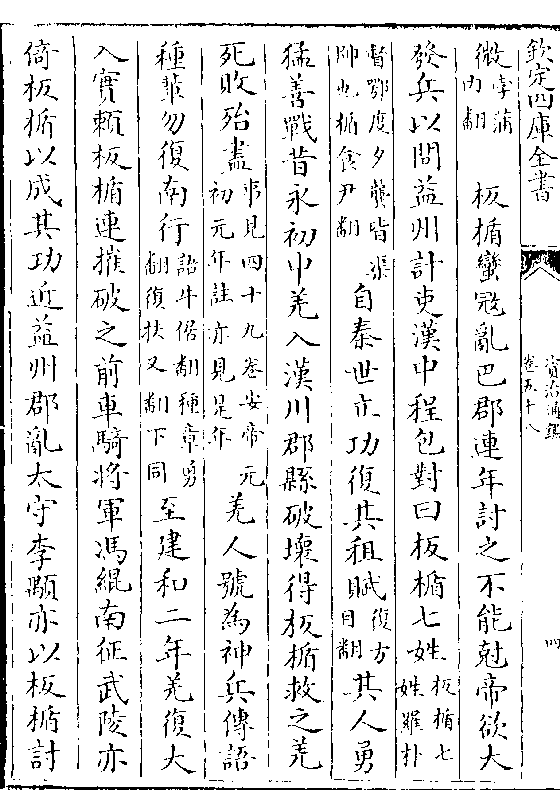 欽定四庫全書
資治通鑑
卷五十八
四
微孛蒲
内翻
板楯蠻宼亂巴郡連年討之不能尅帝欲大
發兵以問益州計吏漢中程包對曰板楯七姓
板楯七
姓羅朴
督鄂度夕龔皆渠
帥也楯食尹翻
自秦世立功復其租賦
復方
目翻
其人勇
猛善戰昔永初中羌入漢川郡縣破壞得板楯救之羌
死敗殆盡
事見四十九卷安帝元
初元年註亦見是年
羌人號為神兵傳語
種軰勿復南行
語牛倨翻種章勇
翻復扶又翻下同
至建和二年羌復大
入實賴板楯連摧破之前車騎將軍馮緄南征武陵亦
倚板楯以成其功近益州郡亂太守李顒亦以板楯討